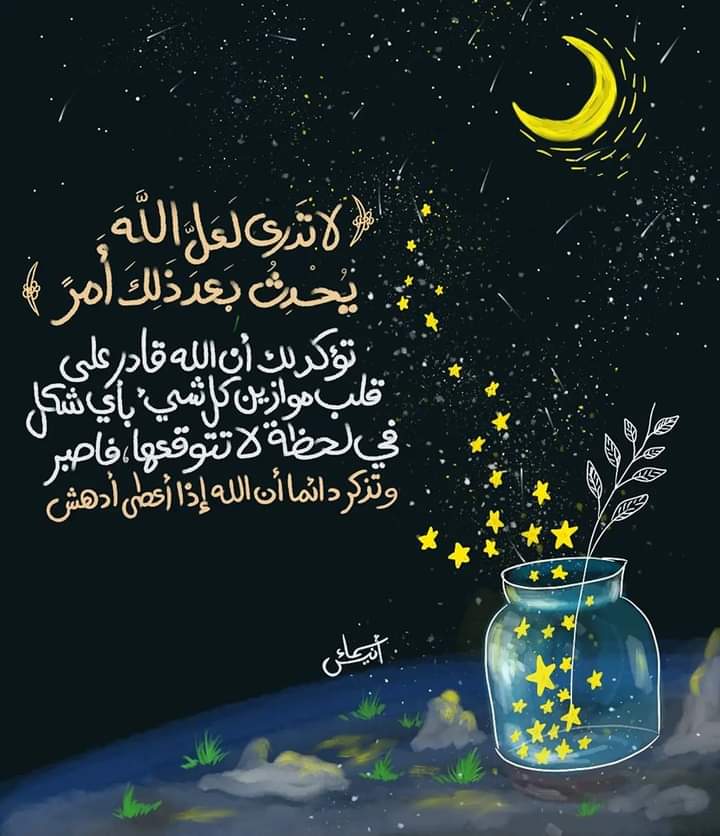 ﴿ لَا تَدرِى لَعَلَّ اللَّهَ
يُحْدِثُ بَعدَ ذَلِكَ أَمرً ﴾
تؤكد لك أن الله قادر على
قلب موازين كل شيء بأي شكل
في لحظة لا تتوقعها، فاصبر
وتذكر دائما أن الله إذا أعطى أدهش